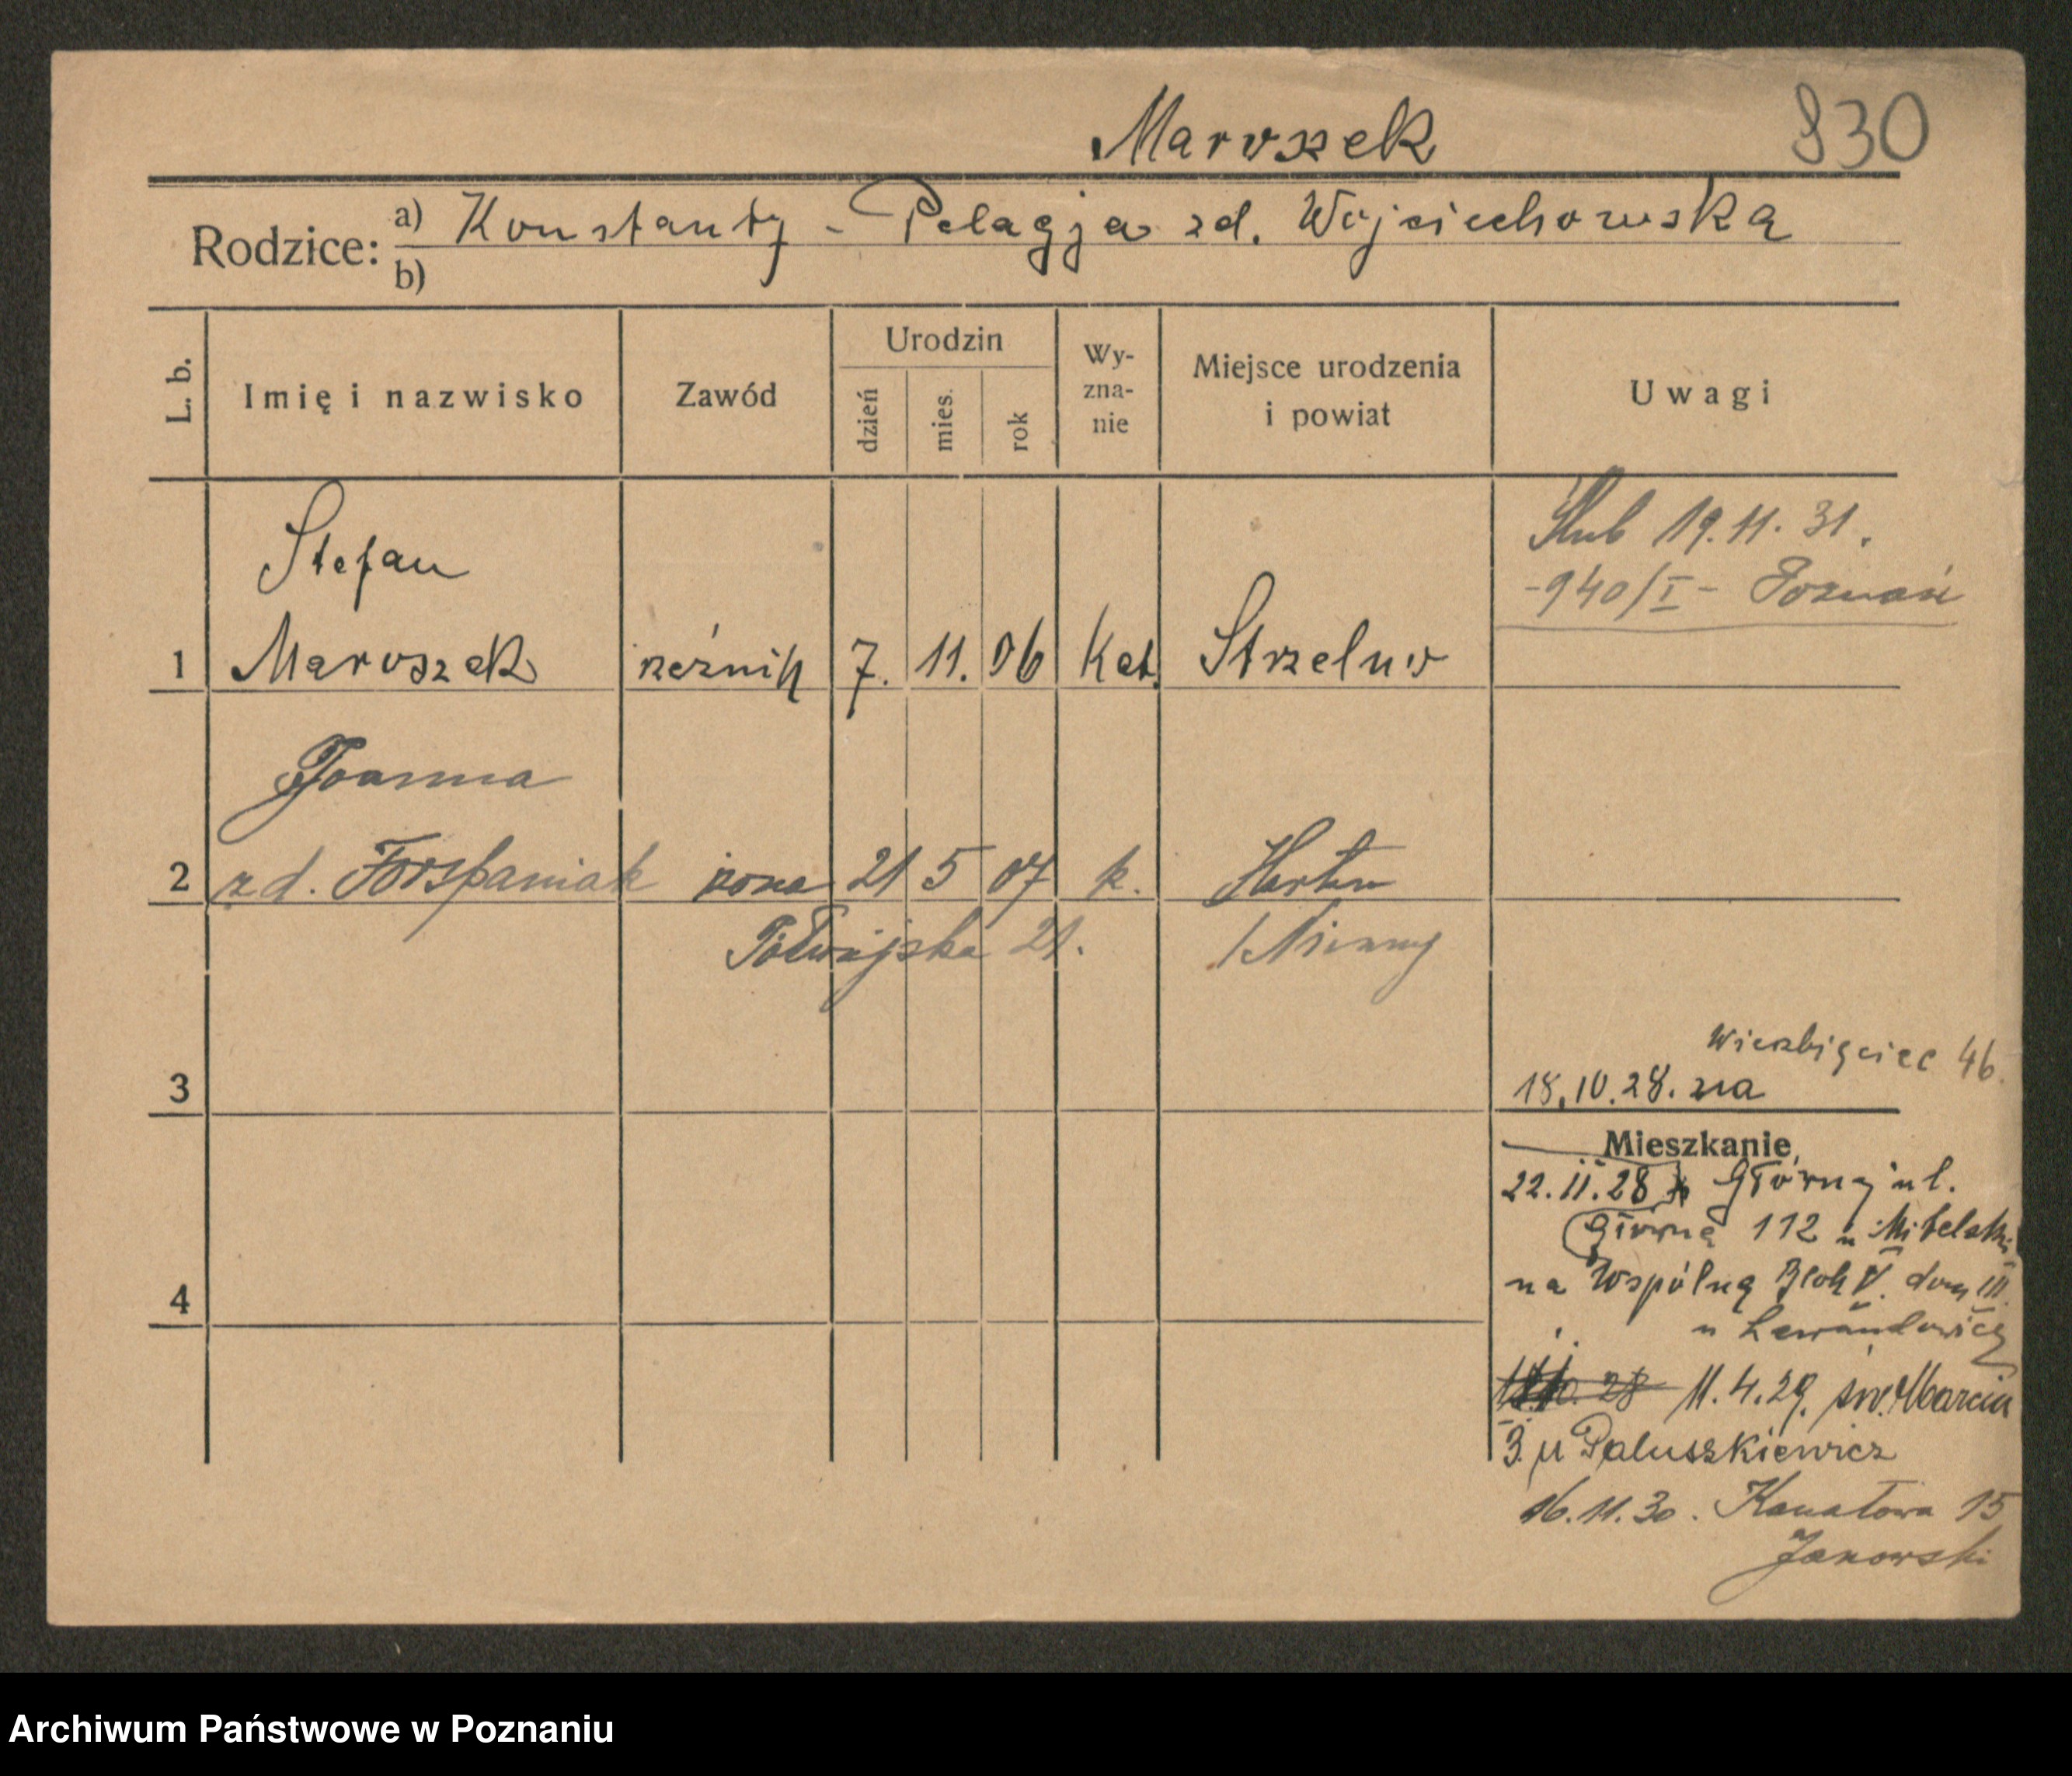 Maroszek 830
Rodzice: a) Konstanty - Pelagja zd. Wojciechowska
b)
L. b. Imię i nazwisko Zawód Urodzin dzień mies. rok Wy-zna-nie Miejsce urodzenia i powiat Uwagi
Ślub 19.11.31.
-940/I- Poznań
Stefan
1 Maroszek rzeźnik 7. 11. 06 Kat. Strzelno
Joanna
2 zd. Forszpaniak żona 21 5 07 k. Herten
Półwiejska 21. /Niemcy
Wierzbięcice 46.
3 18.10.28. na
Mieszkanie
22.11.28 Główną ul.
Główna 112 u
na Wspólną Blok V. dom III.
4 u Lewandowicz
11.4.29. św. Marcin
3 u Paluszkiewicz
16.11.30. Kanałowa 15
Janowski
Archiwum Państwowe w Poznaniu